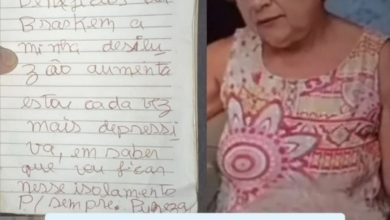 Brasken a
minha desilu
zão aumenta
estou cada vez
mais depressi
va, em saber
que vou ficar
nesse isolamento
P/ sempre.